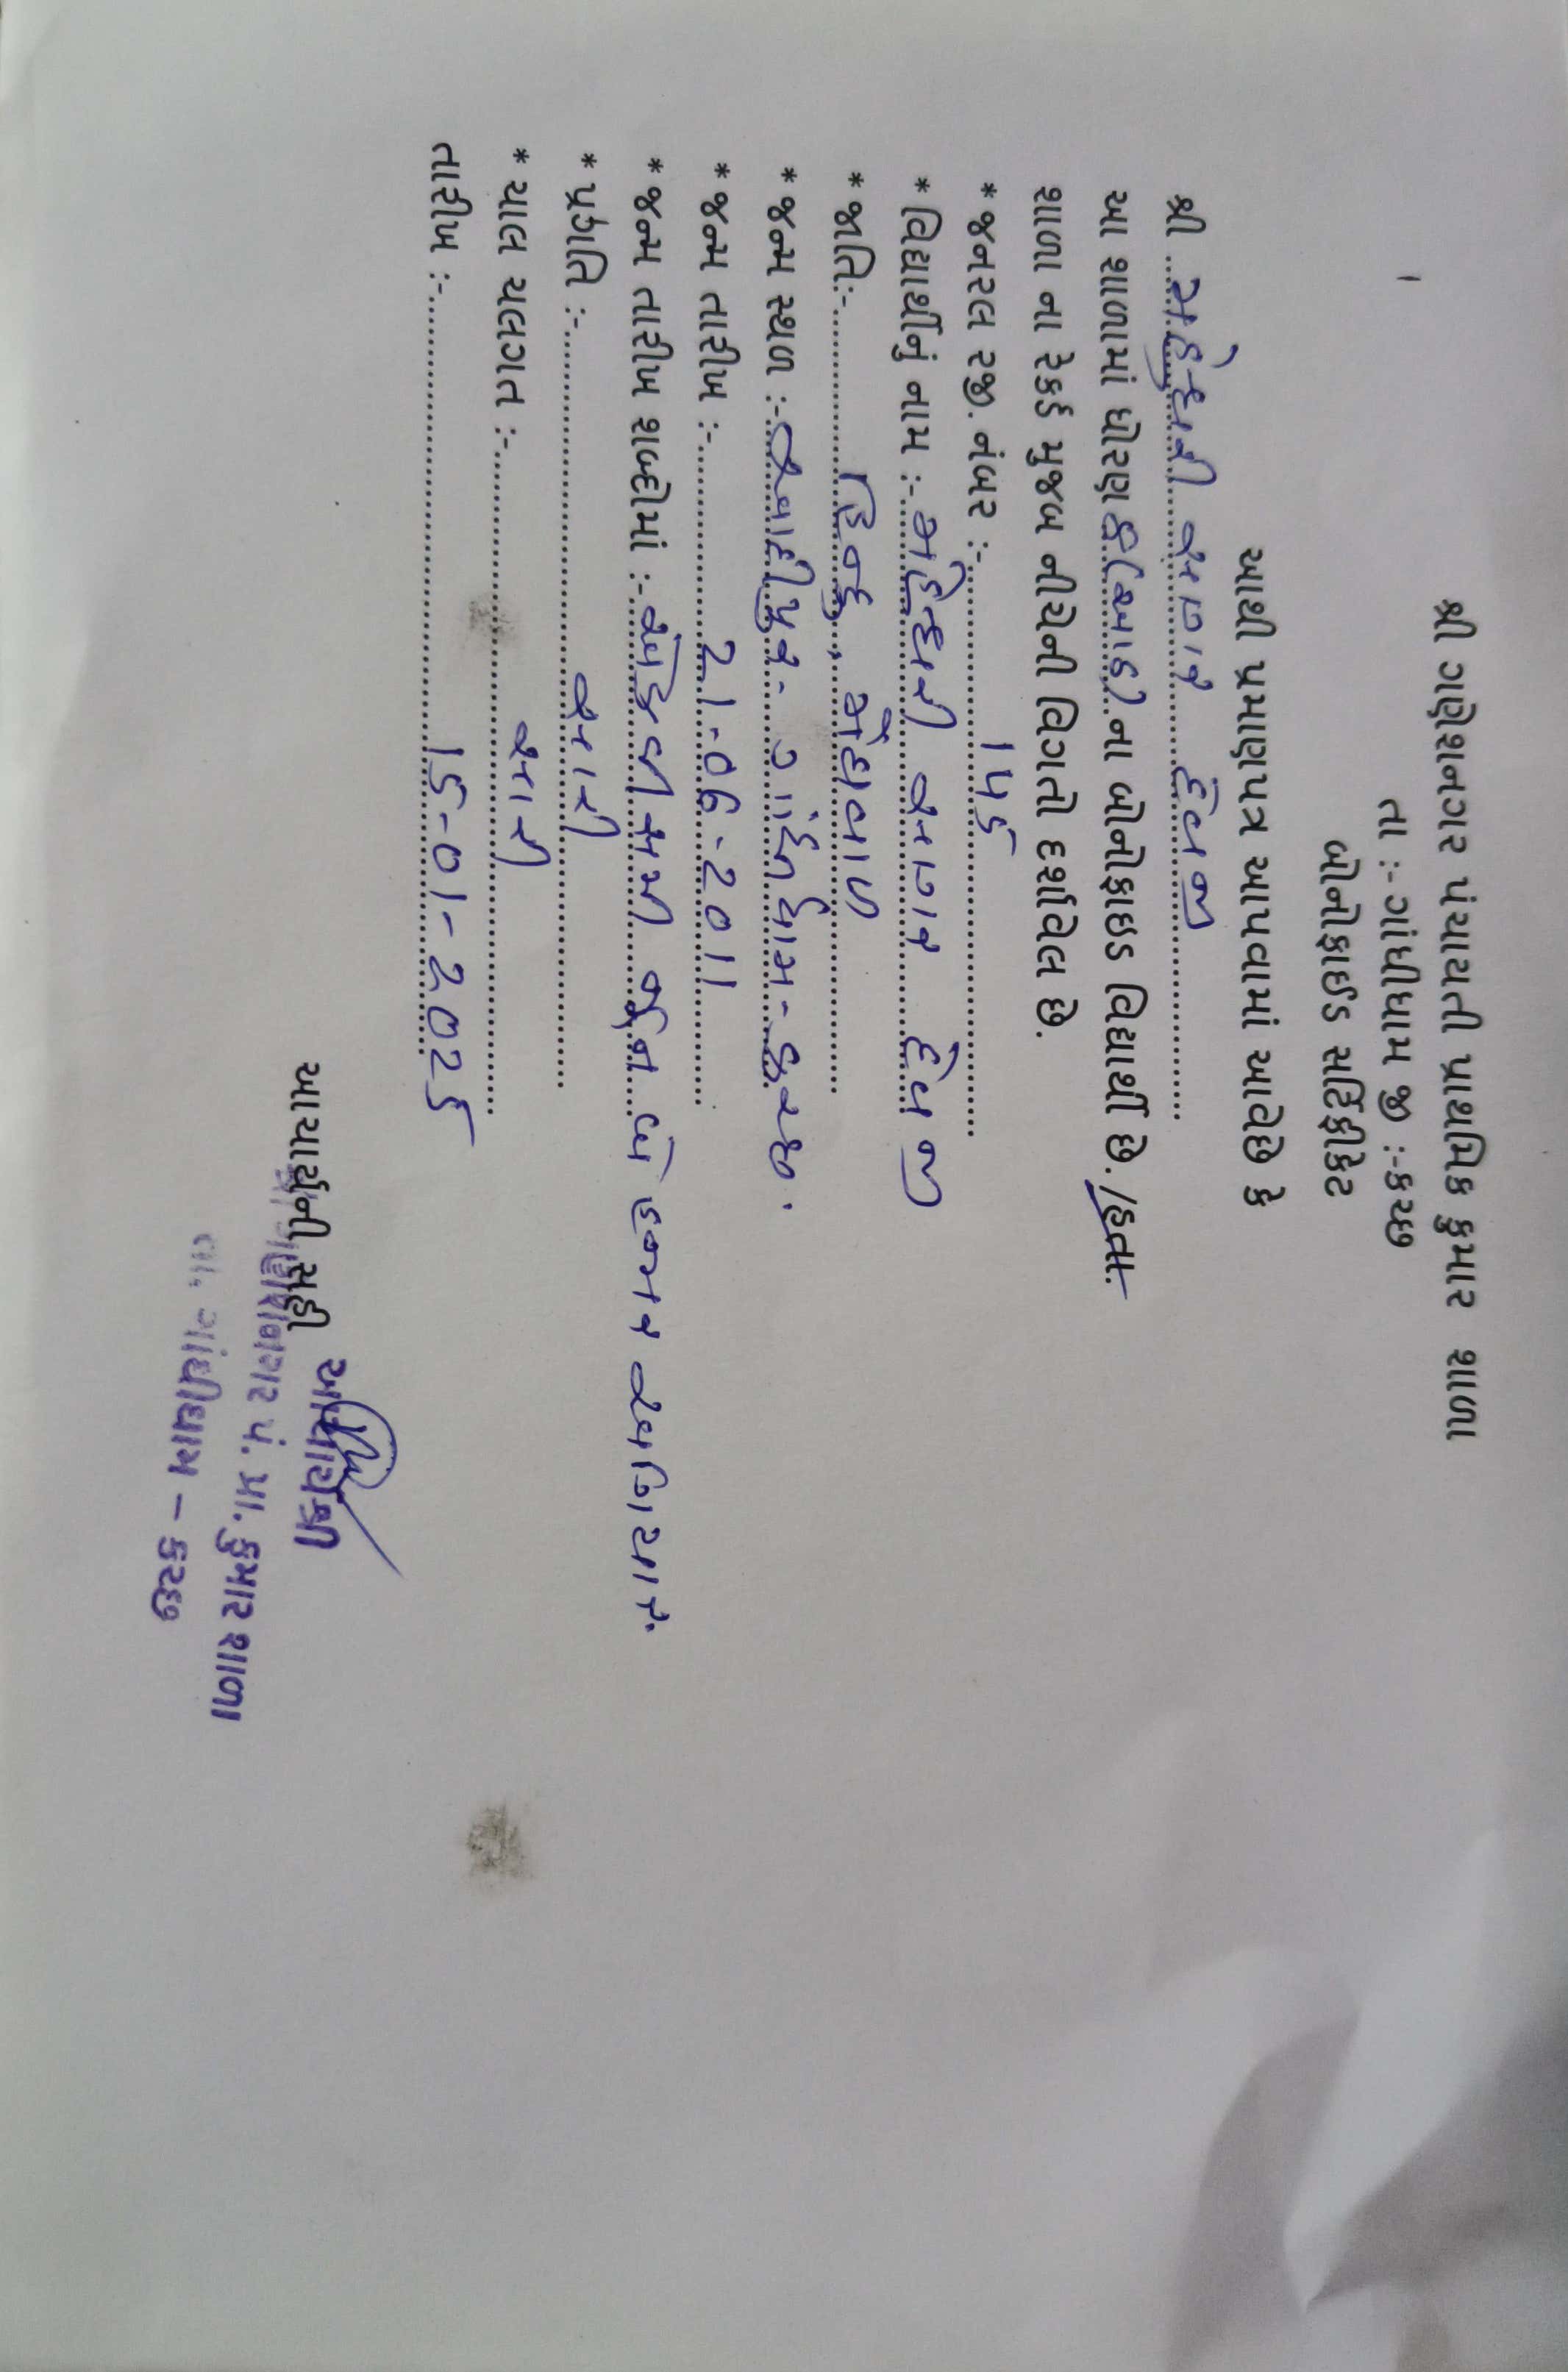 શ્રી ગણેશનગર પંચાયતી પ્રાથમિક કુમાર શાળા
તા :- ગાંધીધામ જી :-કચ્છ
બોનોફાઈડ સર્ટિફીકેટ
આથી પ્રમાણપત્ર આપવામાં આવેછે કે
શ્રી મહેશ્વરી દેવજી
આ શાળામાં ધોરણ ૮ (આઠ) ના બોનોફાઇડ વિદ્યાર્થી છે. /હતા.
શાળા ના રેકર્ડ મુજબ નીચેની વિગતો દર્શાવેલ છે.
* જનરલ રજી. નંબર :- 145
* વિદ્યાર્થીનું નામ :- મહેશ્વરી દેવજી
* જાતિ:- હિન્દુ, મેઘવાળ
* જન્મ સ્થળ :- આદીપુર - ગાંધીધામ - કચ્છ.
* જન્મ તારીખ :- 21-06-2011
* જન્મ તારીખ શબ્દોમાં :- એકવીસમી જૂન બે હજાર અગિયાર.
* પ્રગતિ :- સારી
* ચાલ ચલગત :- સારી
તારીખ :- 15-01-2025
આચાર્યની સહી
આચાર્યશ્રી
શ્રી ગણેશનગર પં. પ્રા. કુમાર શાળા
તા. ગાંધીધામ - કચ્છ